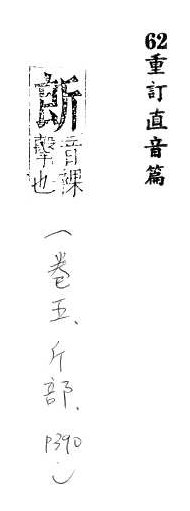 62重訂直音篇
音課
擊也
(卷五、斤部、P390)